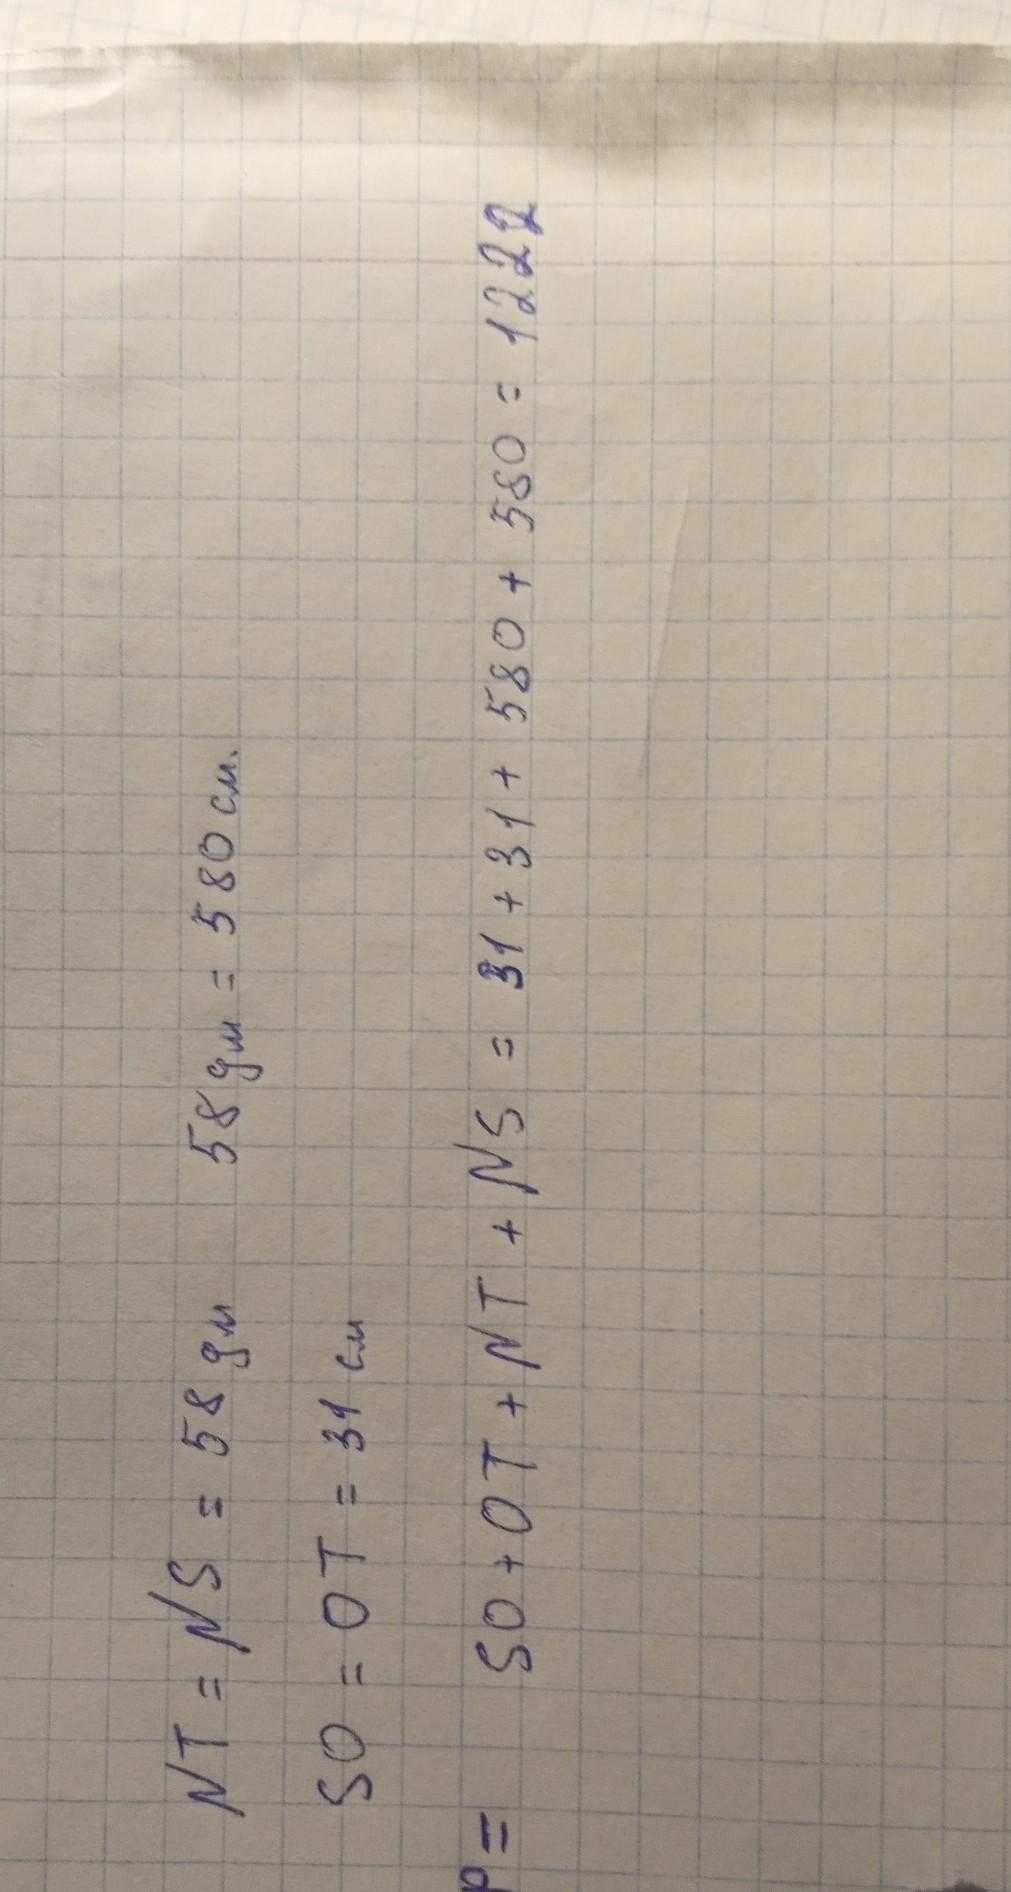 NT = NS = 58 дм 58 дм = 580 см.
SO = OT = 31 см
P = SO + OT + NT + NS = 31 + 31 + 580 + 580 = 1222